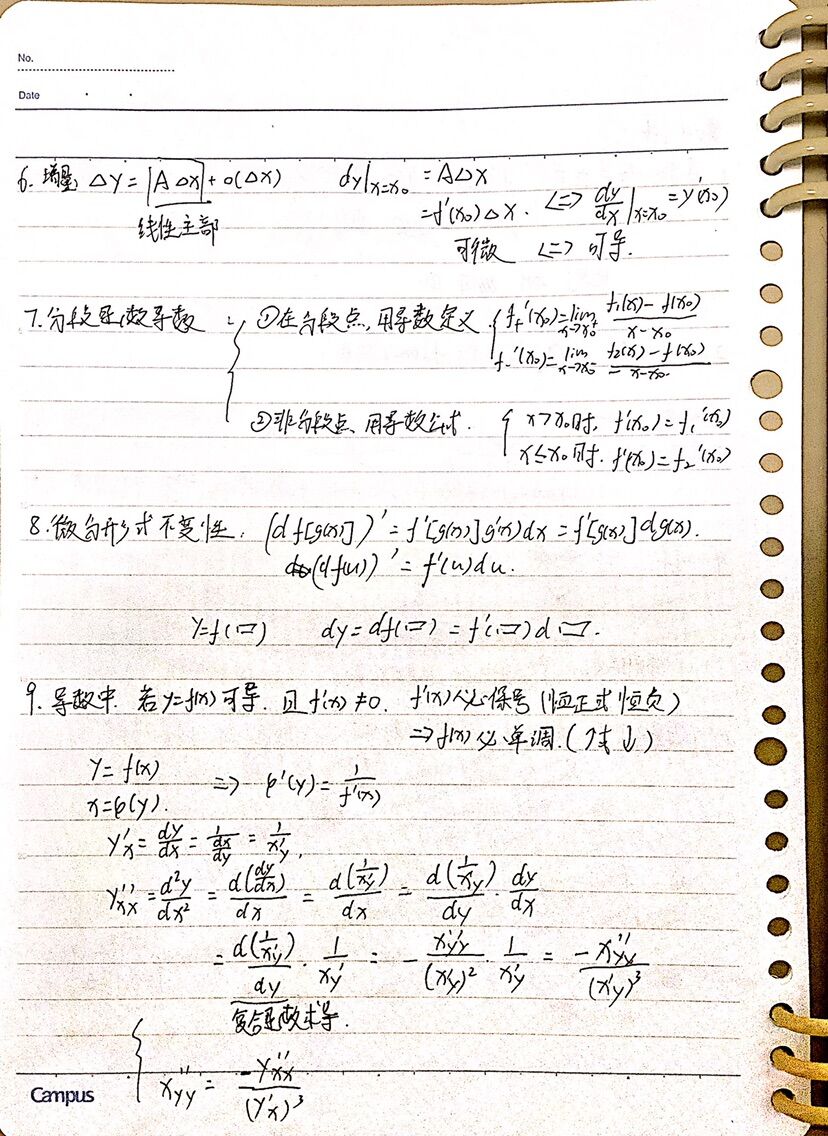 No.
Date
6. 增量: ΔY = |AΔX| + o(ΔX)   dy|x=x₀ = AΔX
线性主部   = f'(x₀)ΔX. <=> dy/dx|x=x₀ = y'(x₀)
可微 <=> 可导.
7. 分段函数导数: { ①在分段点, 用导数定义 { f₊'(x₀) = lim x→x₀⁺ f₁(x)-f(x₀)/x-x₀
f₋'(x₀) = lim x→x₀⁻ f₂(x)-f(x₀)/x-x₀
②非分段点、用导数公式. { x>x₀时, f'(x₀) = f₁'(x₀)
x≤x₀时. f'(x₀) = f₂'(x₀)
8. 微分形式不变性. (d f[g(x)])' = f'[g(x)]g'(x)dx = f'[g(x)]dg(x).
(df(u))' = f'(u)du.
Y=f(□)   dy = df(□) = f'(□)d□.
9. 导数中. 若y=f(x)可导. 且f'(x)≠0. f'(x)必保号(恒正或恒负)
=> f(x)必单调. (↑或↓)
Y = f(x)
x = φ(y). => φ'(y) = 1/f'(x)
Y'x = dy/dx = 1/(dx/dy) = 1/x'y,
Y''xx = d²y/dx² = d(dy/dx)/dx = d(1/x'y)/dx = d(1/x'y)/dy · dy/dx
= d(1/x'y)/dy · 1/x'y = - x''yy/(x'y)² · 1/x'y = -x''yy/(x'y)³
复合函数求导.
{ x''yy = -Y''xx/(Y'x)³
Campus